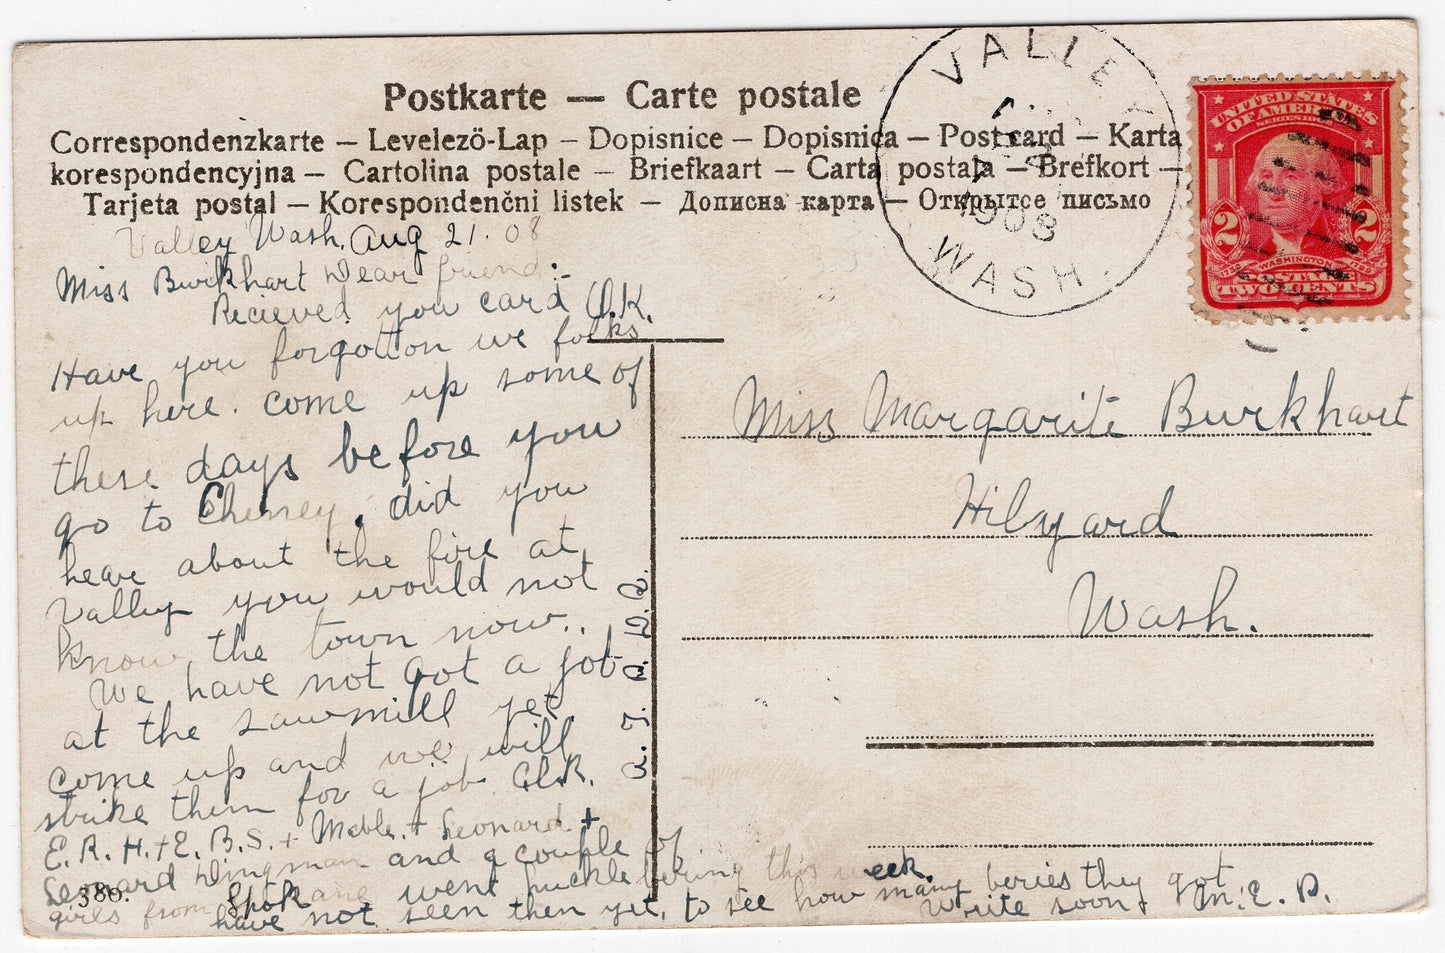 Postkarte — Carte postale
Correspondenzkarte – Levelező-Lap – Dopisnice – Dopisnica – Post card – Karta
korespondencyjna – Cartolina postale – Briefkaart – Carta postala – Brefkort –
Tarjeta postal – Korespondenčni listek – Дописна карта – Открытое письмо
VALLEY
AUG
1908
WASH.
UNITED STATES
OF AMERICA
2 2
WASHINGTON
TWO CENTS
Valley Wash. Aug 21. 08
Miss Burkhart Dear friend:-
Recieved you card O.K.
Have you forgotton we folks
up here. come up some of
these days before you
go to Cheney. did you
hear about the fire at
Valley you would not
know the town now.
We have not got a job
at the sawmill yet
come up and we will
strike them for a job.
E. R. H. + E. B. S. + Mable. + Leonard +
Leonard Dingman and a couple of
girls from Spokane went huckle bering this week.
have not seen then yet, to see how many beries they got
Write soon M. E. D.
380.
Miss Margarite Burkhart
Hilyard
Wash.